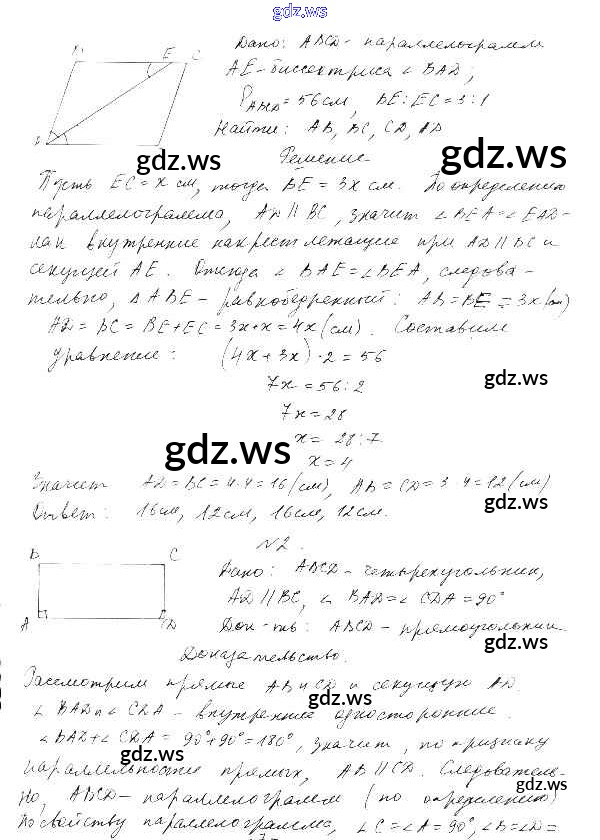 gdz.ws
Дано: ABCD - параллелограмм
B E C
AE - биссектриса ∠ BAD;
P ABCD = 56 см, BE : EC = 3 : 1
Найти: AB, BC, CD, AD
gdz.ws gdz.ws
Решение
Пусть EC = x см, тогда BE = 3x см. По определению
параллелограмма, AD || BC, значит ∠ BEA = ∠ EAD -
как внутренние накрест лежащие при AD || BC и
секущей AE. Отсюда ∠ BAE = ∠ BEA, следова-
тельно, △ ABE - равнобедренный: AB = BE = 3x (см)
AD = BC = BE + EC = 3x + x = 4x (см). Составим
уравнение: (4x + 3x) · 2 = 56
7x = 56 : 2
gdz.ws
7x = 28
x = 28 : 7
gdz.ws
x = 4
Значит AD = BC = 4 · 4 = 16 (см), AB = CD = 3 · 4 = 12 (см)
gdz.ws
Ответ: 16 см, 12 см, 16 см, 12 см.
N2.
B C
Дано: ABCD - четырехугольник,
AD || BC, ∠ BAD = ∠ CDA = 90°
A D
Док-ть: ABCD - прямоугольник
gdz.ws
Доказательство.
Рассмотрим прямые AB и CD и секущую AD.
gdz.ws
∠ BAD и ∠ CDA - внутренние односторонние.
∠ BAD + ∠ CDA = 90° + 90° = 180°, значит, по признаку
gdz.ws
параллельности прямых, AB || CD. Следователь-
но, ABCD - параллелограмм (по определению)
gdz.ws
По свойству параллелограмма, ∠ C = ∠ A = 90°, ∠ B = ∠ D =